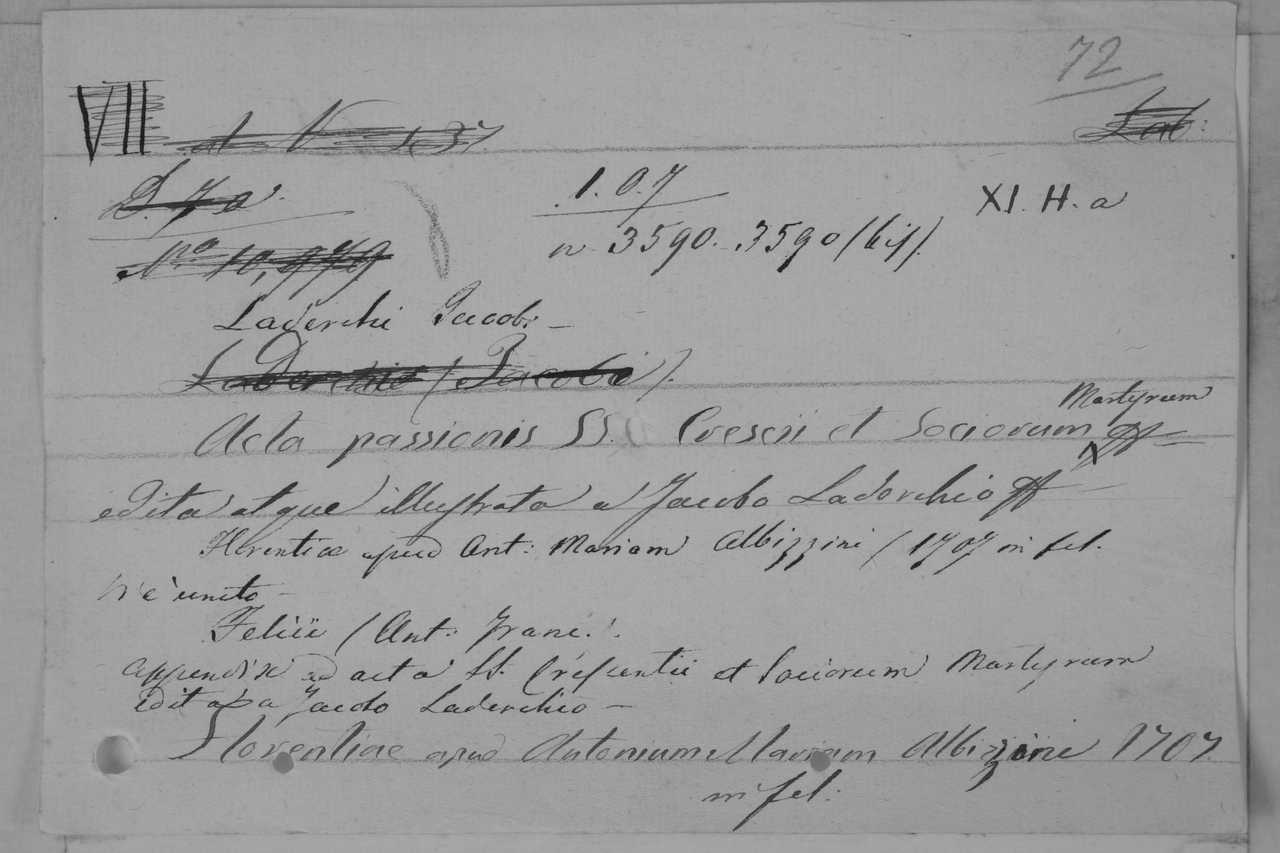 72
VII
Lad:
D. 7 a.
1.0.7
XI. H. a
No 10,979
n 3590. 3590 (bis).
Laderchi Jacobi
Laderchio (Jacobi).
Martyrum
Acta passionis SS. Crescii et Sociorum
edita atque illustrata a Jacobo Laderchio
Florentiæ apud Ant: Mariam Albizzini (1707 in fol.
Vi è unito
Felicii (Ant: Franc.).
appendix ad acta SS. Crescentii et Sociorum Martyrum
edita a Jacobo Laderchio
Florentiae apud Antonium Mariam Albizzini 1707.
in fol: